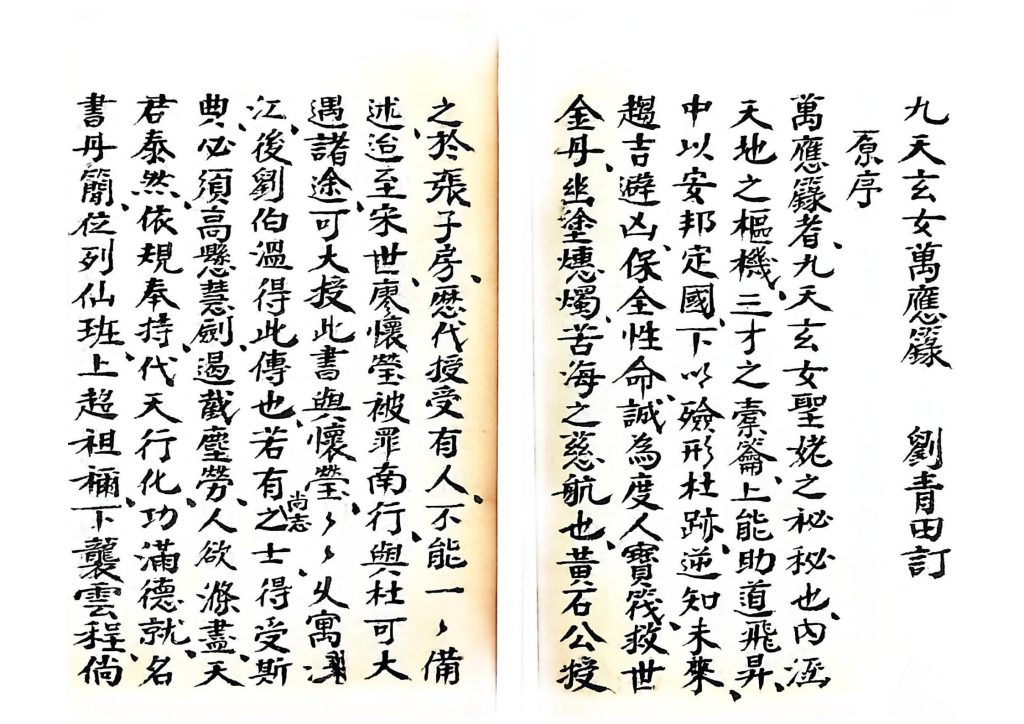 九天玄女萬應籙　劉青田訂
原序
萬應籙者、九天玄女聖姥之秘秘也、內涵
天地之樞機、三才之橐籥、上能助道飛昇、
中以安邦定國、下以殮形杜跡、逆知未來、
趨吉避凶、保全性命、誠為度人寶筏、救世
金丹、幽塗燻燭、苦海之慈航也、黃石公授
之於張子房、歷代授受有人、不能一〻備
述、迨至宋世、廖懷瑩被罪南行、與杜可大
遇諸途、可大授此書與懷瑩、〻〻乂寓
江、後劉伯溫得此傳也、若有尚志之士、得受斯
典、必須高懸慧劍、遏截塵勞、人欲滌盡、天
君泰然、依規奉持、代天行化、功滿德就、名
書丹簡、位列仙班、上超祖禰、下襲雲程、倘